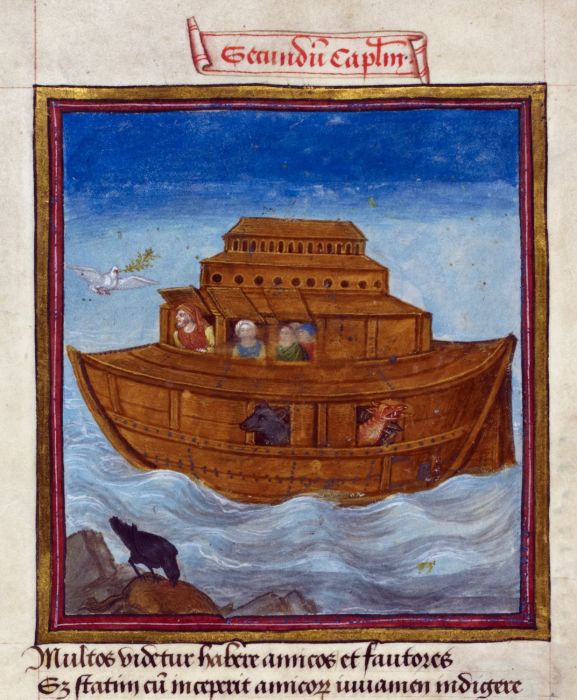 Secundū Caplm.
Multos videtur habere amicos et fautores
Sꝫ statim cū inceperit amicoꝝ iuuamen indigere